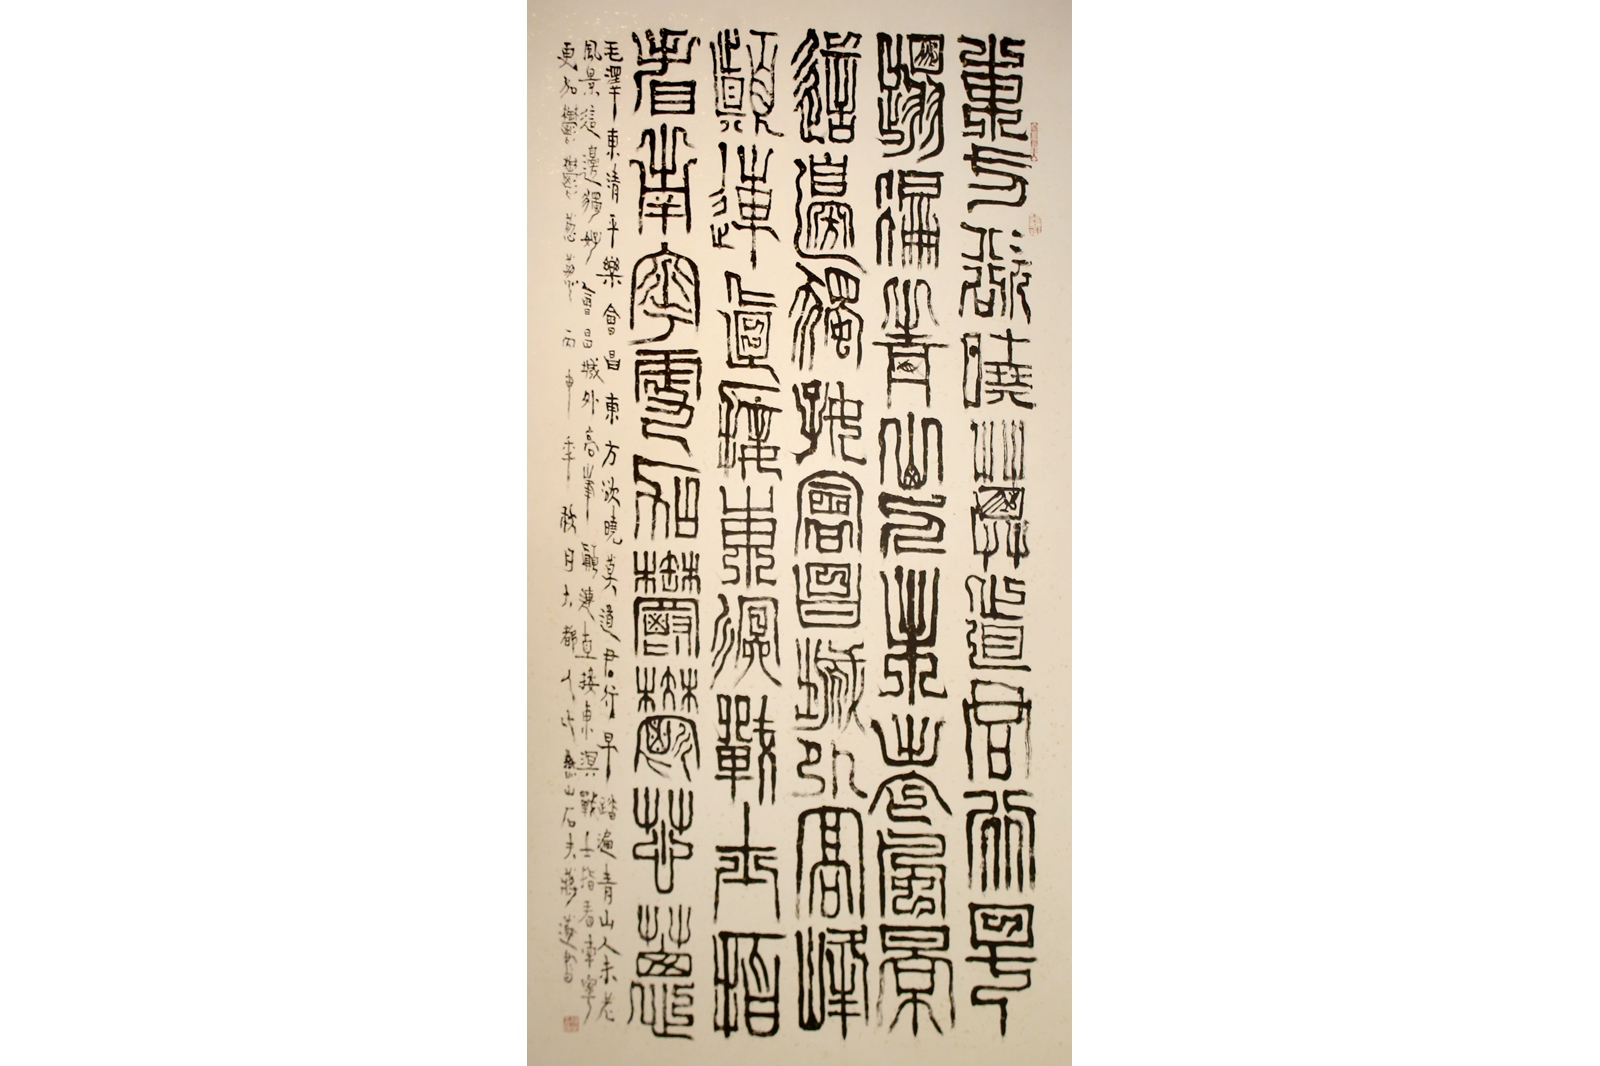 東方欲曉莫道君行早
踏遍青山人未老風景
這邊獨好會昌城外高峰
顛連直接東溟戰士指
看南粵更加鬱鬱蔥蔥
毛澤東清平樂會昌東方欲曉莫道君行早踏遍青山人未老
風景這邊獨好會昌城外高峯顛連直接東溟戰士指看南粵
更加鬱鬱蔥蔥丙申年秋月大都人氏燕山石夫蔣蓮書